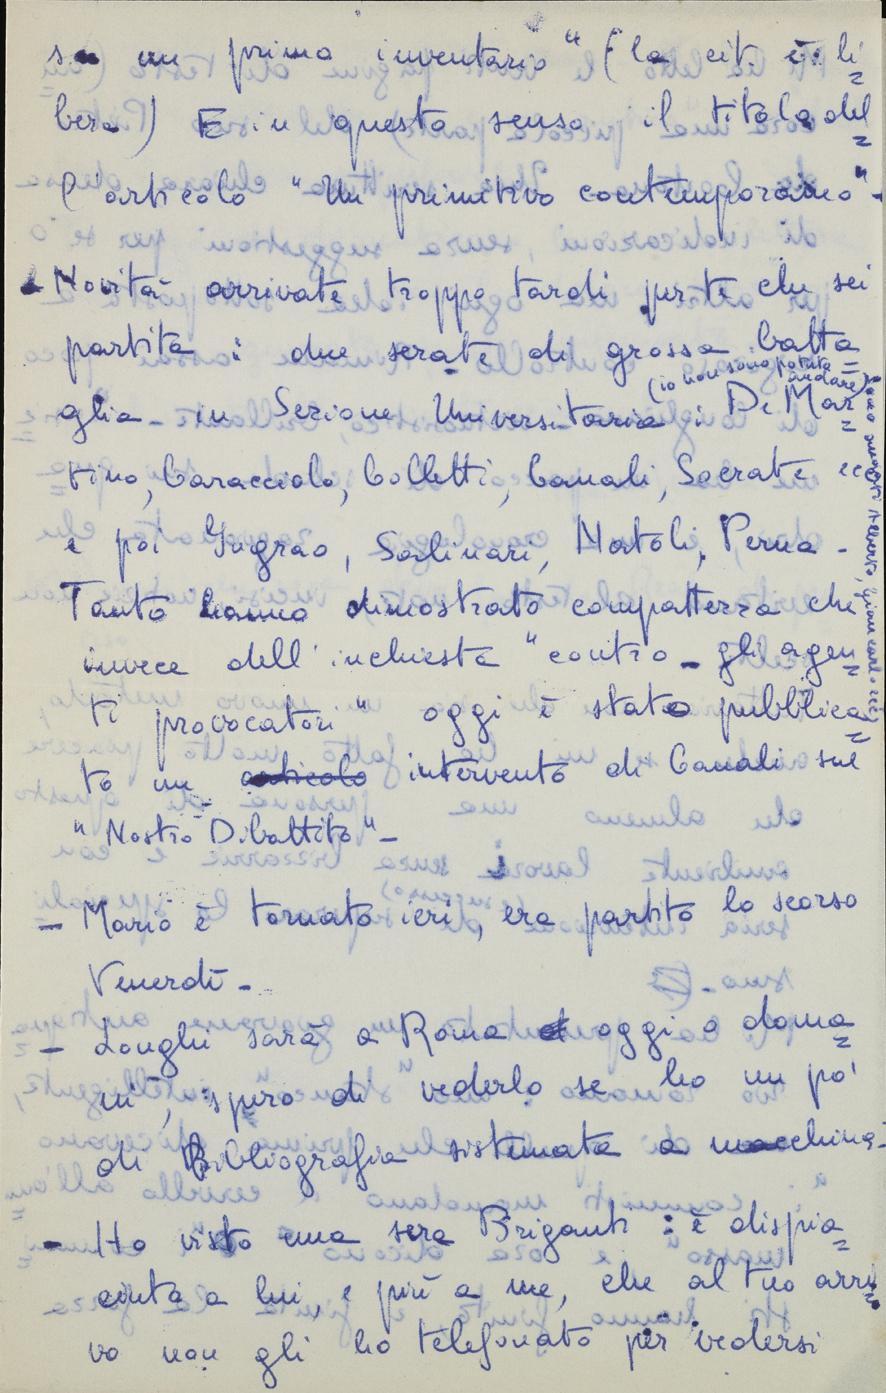 su un primo inventario" (la cit. è: li=
bera.) E in questo senso il titolo del=
l'articolo "Un primitivo contemporaneo"-
- Novità arrivate troppo tardi per te che sei
partita: due serate di grossa batta=
glia in Sezione Universitaria: Di Mar=
(io non sono potuta andare)
tino, Caracciolo, Colletti, Canali, Socrate ecc
e poi Ingrao, Salinari, Natoli, Perna -
Tanto hanno dimostrato compattezza che
invece dell'inchiesta "contro gli agen=
ti provocatori" oggi è stato pubblica=
to un articolo intervento di Canali sul
"Nostro Dibattito"-
- Mario è tornato ieri, era partito lo scorso
Venerdì -
- Longhi sarà a Roma oggi o doma=
ni, spero di vederlo se ho un po'
di Bibliografia sistemata a macchina-
- Ho visto una sera Briganti: è dispia=
ciuta a lui, e più a me, che al tuo arri=
vo non gli ho telefonato per vedersi
Alberto, Giancarlo ecc)